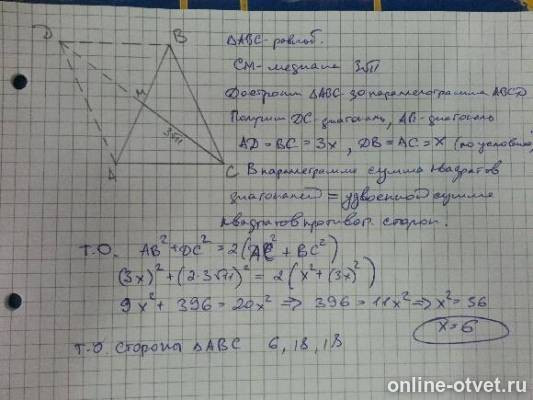 D
B
M
3√11
A
C
ΔABC - равноб.
CM - медиана 3√11
Достроим ΔABC до параллелограмма ABCD
Получим DC - диагональ, AB - диагональ
AD = BC = 3x, DB = AC = x (по условию)
В параллелограмме сумма квадратов
диагоналей = удвоенной сумме
квадратов противоп. сторон.
Т.О. AB² + DC² = 2(AC² + BC²)
(3x)² + (2·3√11)² = 2(x² + (3x)²)
9x² + 396 = 20x² => 396 = 11x² => x² = 36
x = 6
Т.О. стороны ΔABC 6, 18, 18
online-otvet.ru